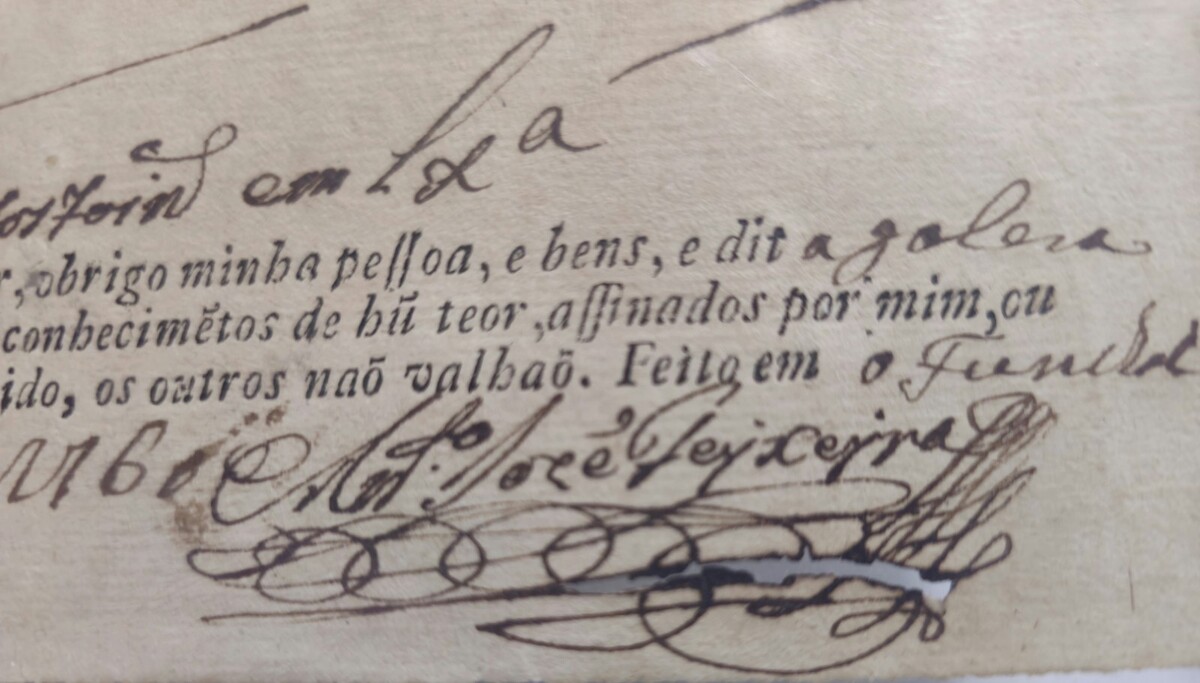 em Lxª
r, obrigo minha peſſoa, e bens, e dit a galera
conhecimẽtos de hũ teor, aſſinados por mim, ou
ido, os outros naõ valhaõ. Feito em o Funchal
176 Antº. Jozé Teyxeyra